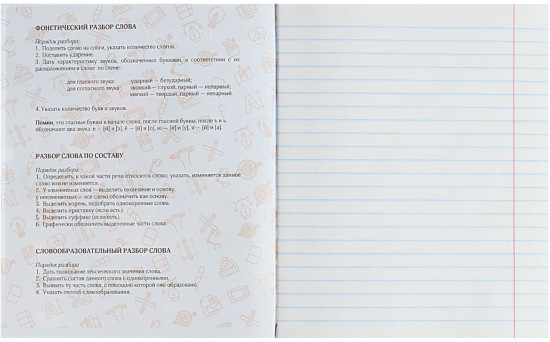 ФОНЕТИЧЕСКИЙ РАЗБОР СЛОВА
Порядок разбора:
1. Поделить слово на слоги, указать количество слогов.
2. Поставить ударение.
3. Дать характеристику звуков, обозначенных буквами, в соответствии с их
расположением в слове по схеме:
для гласного звука: ударный — безударный;
для согласного звука: звонкий — глухой, парный — непарный;
мягкий — твердый, парный — непарный.
4. Указать количество букв и звуков.
Помни, что гласные буквы в начале слова, после гласной буквы, после ъ и ь
обозначают два звука: е – [й] и [э], ё – [й] и [о], ю – [й] и [у], я – [й] и [а].
РАЗБОР СЛОВА ПО СОСТАВУ
Порядок разбора:
1. Определить, к какой части речи относится слово, указать, изменяется данное
слово или не изменяется.
2. У изменяемых слов — выделить окончание и основу,
у неизменяемых — все слово обозначить как основу.
3. Выделить корень, подобрать однокоренные слова.
4. Выделить приставку (если есть).
5. Выделить суффикс (если есть).
6. Графически обозначить выделенные части слова.
СЛОВООБРАЗОВАТЕЛЬНЫЙ РАЗБОР СЛОВА
Порядок разбора
1. Дать толкование лексического значения слова.
2. Сравнить состав данного слова с однокоренными.
3. Выявить ту часть слова, с помощью которой оно образовано.
4. Указать способ словообразования.